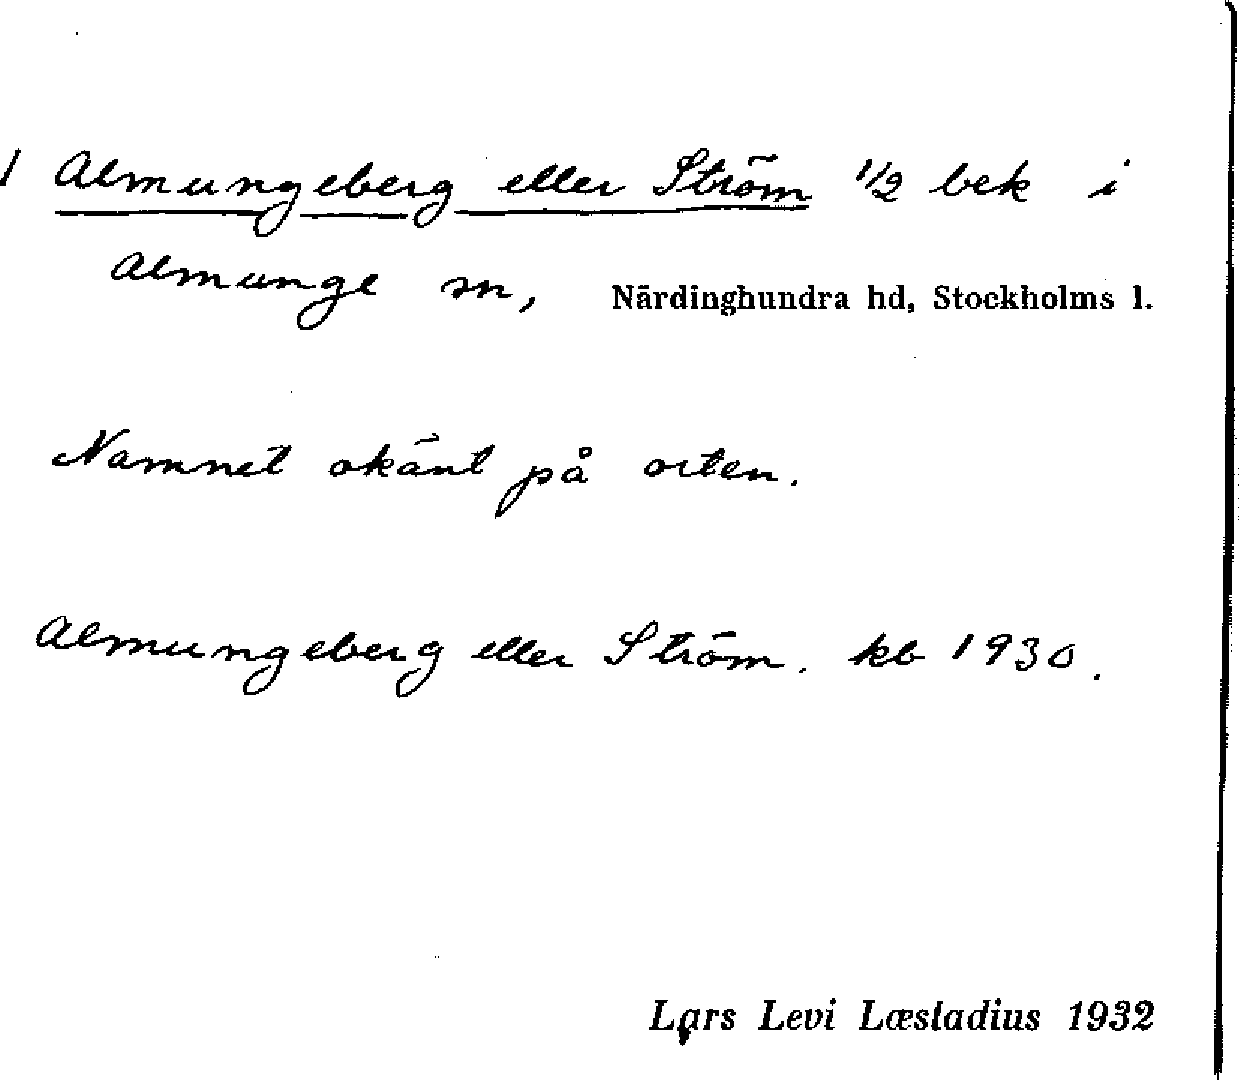 1 Almungeberg eller Ström 1/2 bek i
Almunge sn, Närdinghundra hd, Stockholms l.
Namnet okänt på orten.
Almungeberg eller Ström. kb 1930.
Lars Levi Læstadius 1932